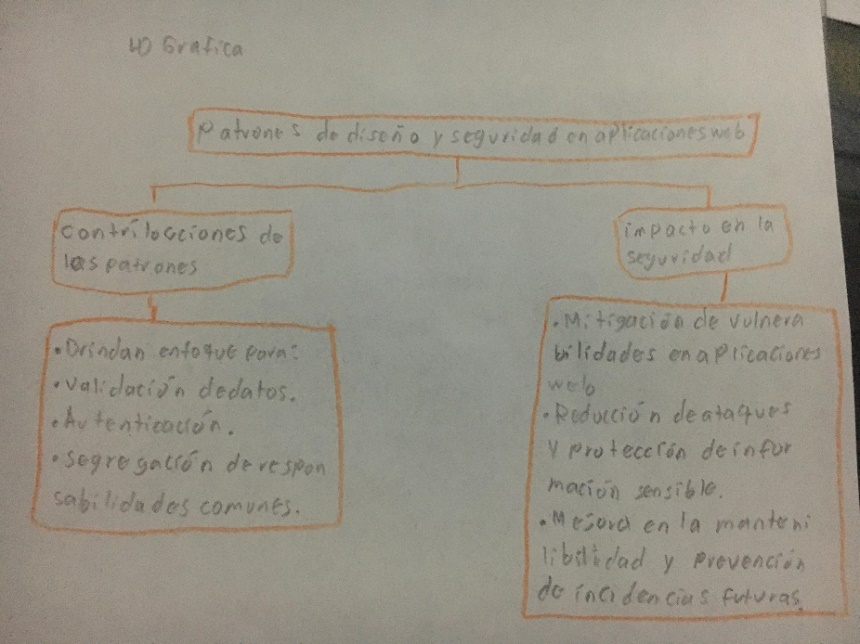 4) Grafica
Patrones de diseño y seguridad en aplicaciones web
contribociones de
las patrones
impacto en la
seguridad
• Brindan enfoque para:
• validación de datos.
• Autenticación.
• segregación de respon
sabilidades comunes.
• Mitigación de vulnera
bilidades en aplicaciones
web
• Reducción de ataques
y protección de infor
mación sensible.
• Mejora en la manteni
libilidad y prevención
de incidencias futuras.